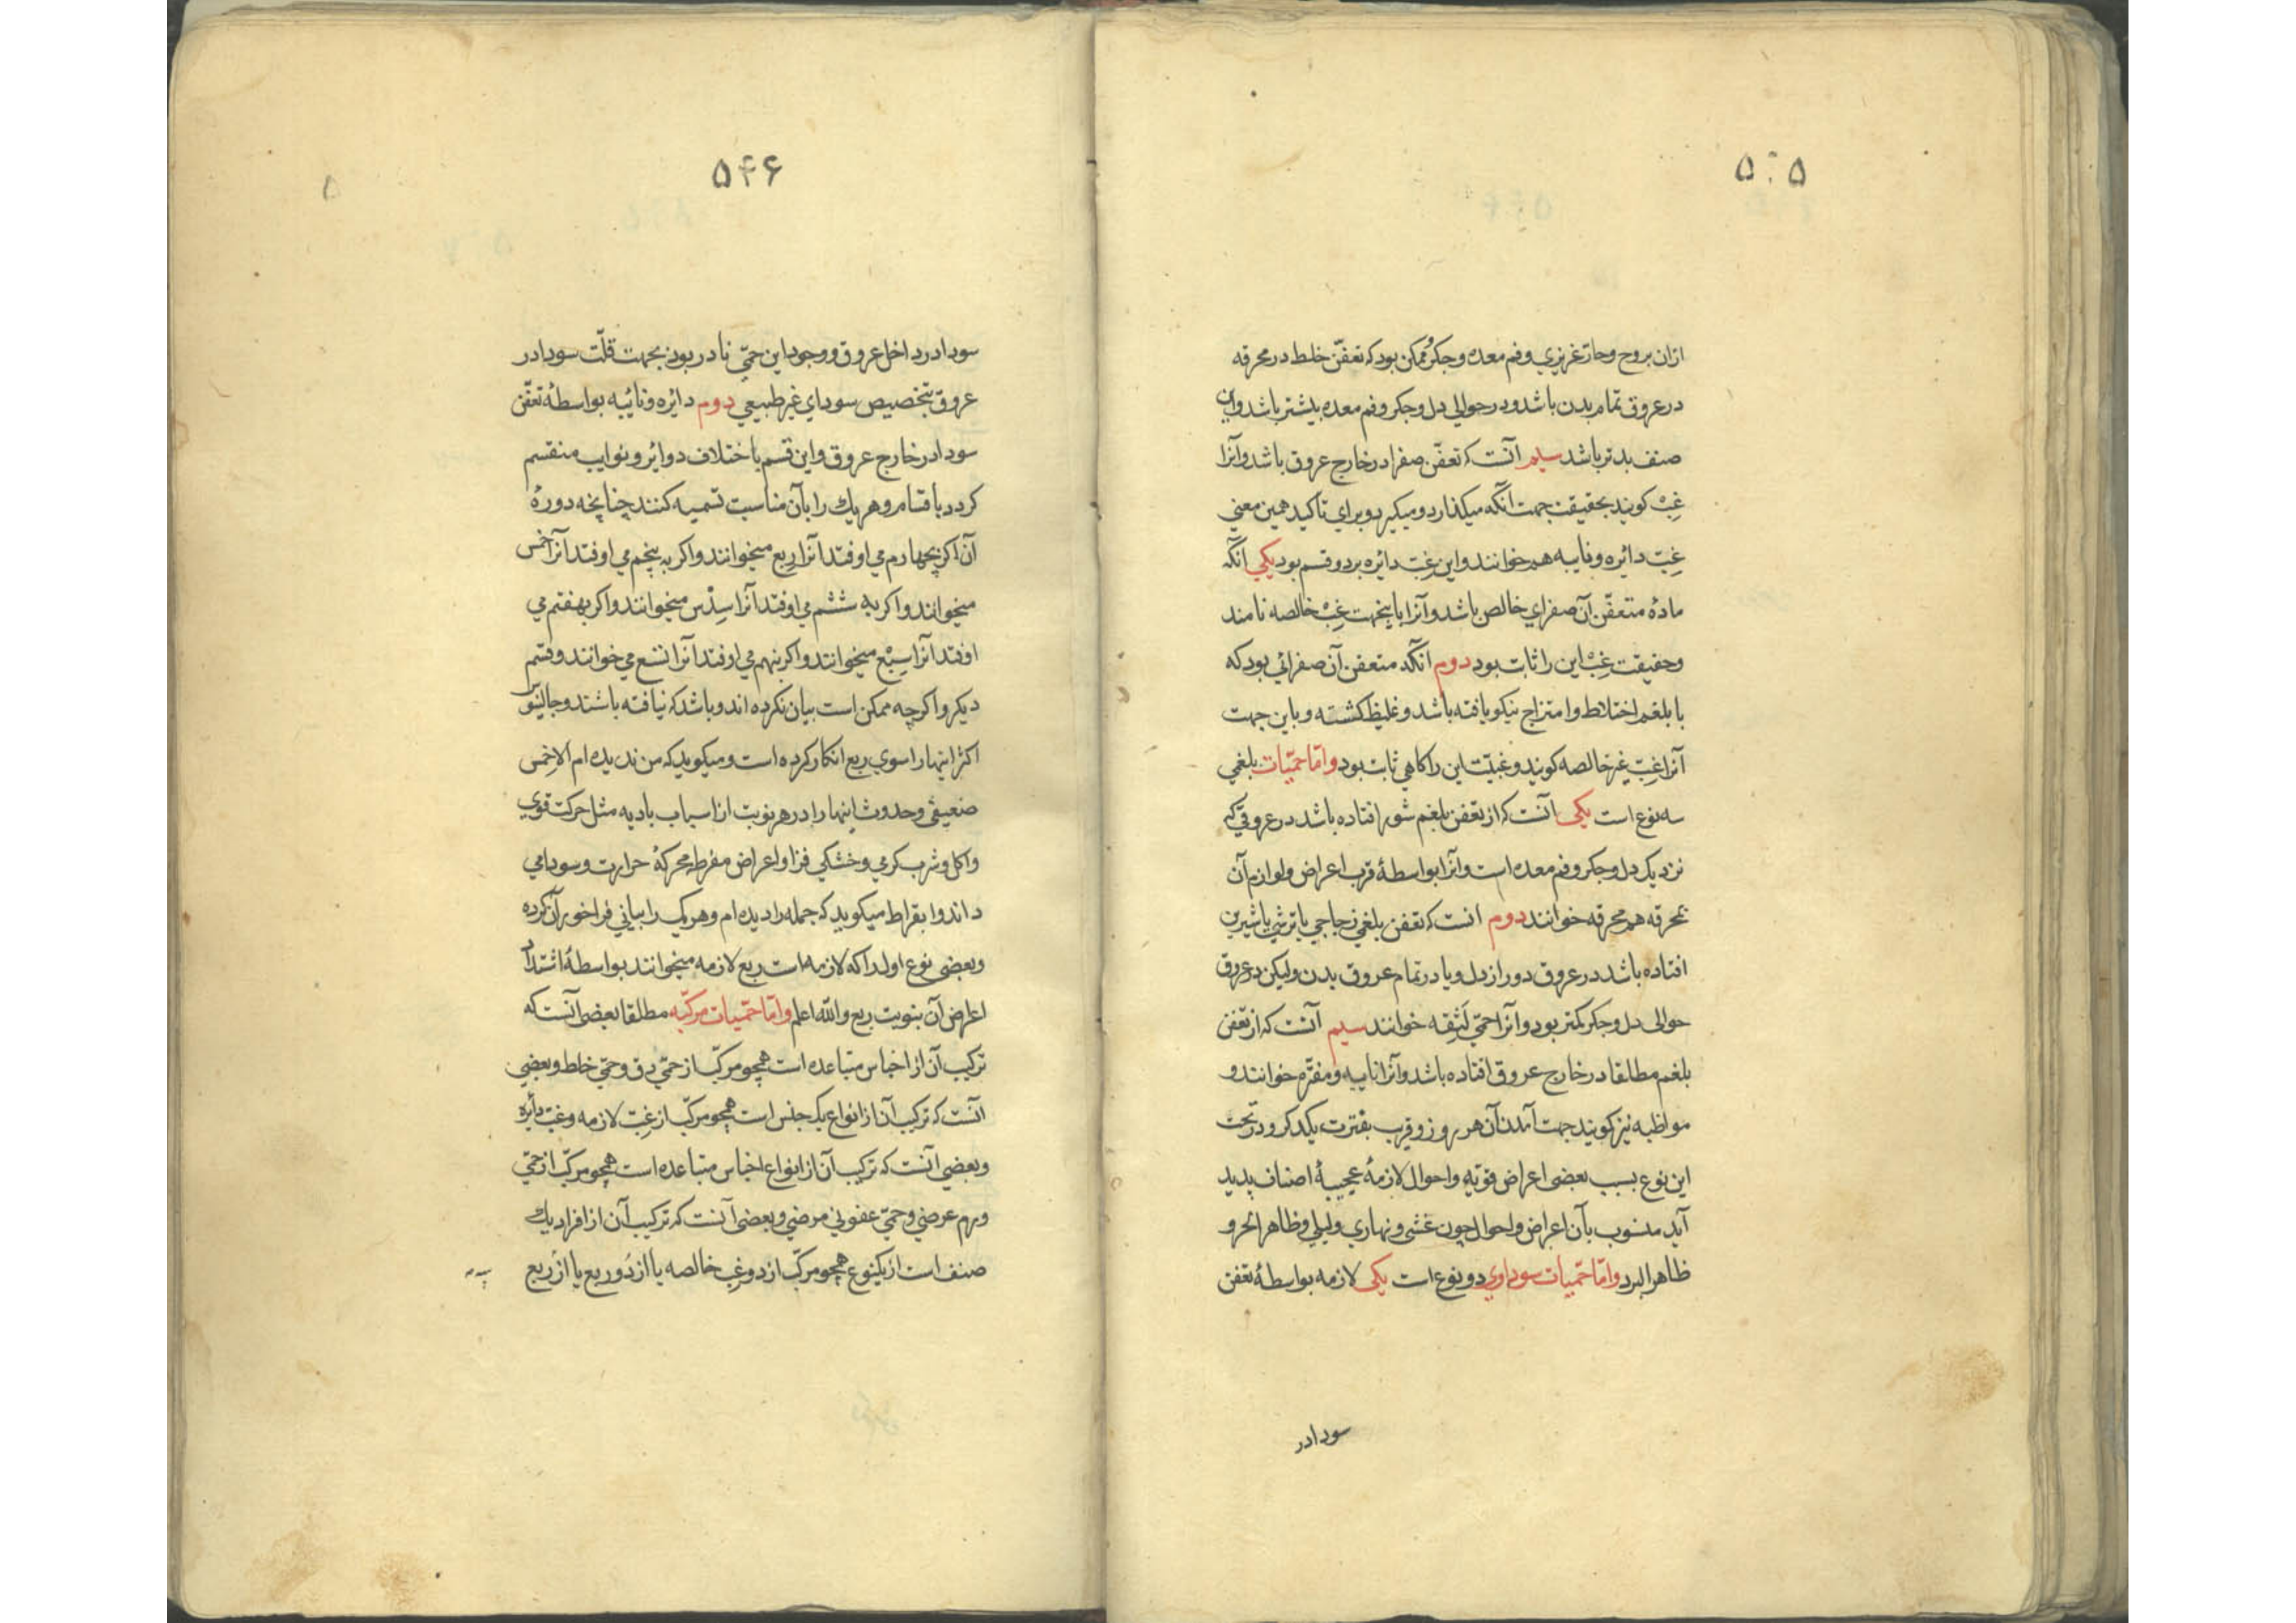 ۵۴۵
ازان بروح و حار غریزی و فم معده و جکر و ممکن بود که تعفّن خلط در محرقه
در عروق تمام بدن باشد و در حوالی دل و جکر و فم معده بیشتر باشد و این
صنف بدتر باشد سیم آنست که تعفّن صفرا در خارج عروق باشد و آنرا
غِبّ کویند بحقیقت جهت آنکه میکذارد و میکیرد و برای تاکید همین معنی
غِبّ دائره و نایبه هم خوانند و این غِبّ دائره بر دو قسم بود یکی آنکه
مادۀ متعفّن آن صفرای خالص باشد و آنرا باینجهت غِبّ خالصه نامند
و حقیقت غِبّ این را ثابت بود دوم آنکه متعفن آن صفرائی بود که
با بلغم اختلاط و امتزاج نیکو یافته باشد و غلیظ کشته و باین جهت
آنرا غِبّ غیر خالصه کویند و غبیّت این را کاهی ثابت بود و امّا حمّیات بلغمی
سه نوع است یکی آنست که از تعفن بلغم شور افتاده باشد در عروقی که
نزدیک دل و جکر و فم معده است و آنرا بواسطۀ قرب اعراض و لوازم آن
بمحرقه هم محرقه خوانند دوم انست که تعفن بلغمی زجاجی یا ترشی یا شیرین
افتاده باشد در عروق دور از دل و یا در تمام عروق بدن ولیکن در عروق
حوالی دل و جکر کمتر بود و آنرا حمّی لَثِقه خوانند سیم آنست که از تعفن
بلغم مطلقا در خارج عروق افتاده باشد و آنرا نایبه و مفتّره خوانند و
مواظبه نیز کویند جهت آمدن آن هر روز و قرب بفترت یکدکر و در تحت
این نوع بسبب بعضی اعراض قویّه و احوال لازمۀ عجیبۀ اصناف پدید
آید منسوب بآن اعراض و احوال چون غشی و نهاری و لیلی و ظاهر الحر و
ظاهر البرد و امّا حمّیات سوداوی دو نوع است یکی لازمه بواسطۀ تعفن
سودا در
۵۴۶
سودا در داخل عروق و وجود این حمّی نادر بود بجهت قلّت سودا در
عروق بتخصیص سودای غیر طبیعی دوم دائره و نائبه بواسطۀ تعفّن
سودا در خارج عروق و این قسم باختلاف دوائر و نوایب منقسم
کردد باقسام و هر یک را بآن مناسبت تسمیه کنند چنانچه دورۀ
آن اکر بچهارم می اوفتد آنرا ربع میخوانند و اکر به پنجم می اوفتد آنرا خمس
میخوانند و اکر به ششم می اوفتد آنرا سِدْس میخوانند و اکر بهفتم می
اوفتد آنرا سِبْع میخوانند و اکر بنهم می اوفتد آنرا تسع می خوانند و قسم
دیکر و اکرچه ممکن است بیان نکرده اند و باشد که نیافته باشند و جالینوس
اکثر اینها را سوی ربع انکار کرده است و میکوید که من ندیده ام الا خمس
ضعیفی و حدوث اینها را در هر نوبت از اسباب بادیه مثل حرکت قوی
و اکل و شرب کرمی و خشکی فزا و اعراض مفرطه محرکۀ حرارت و سودا می
داند و ابقراط میکوید که جمله را دیده ام و هر یک را بیانی فراخور آن کرده
و بعضی نوع اول را که لازمه است ربع لازمه میخوانند بواسطۀ اشتداد
اعراض آن بنوبت ربع و الله اعلم و امّا حمّیات مرکّبه مطلقا بعضی آنست که
ترکیب آن از اجناس متباعده است همچو مرکّب از حمّی دق و حمّی خلط و بعضی
آنست که ترکیب آن از انواع یک جنس است همچو مرکّب از غِبّ لازمه و غبّ دائره
و بعضی آنست که ترکیب آن از انواع اجناس متباعده است همچو مرکّب از حمّی
ورم عرضی و حمّی عفونی مرضی و بعضی آنست که ترکیب آن از افراد یک
صنف است از یکنوع همچو مرکّب از دو غِبّ خالصه یا از دَو ربع یا از ربع